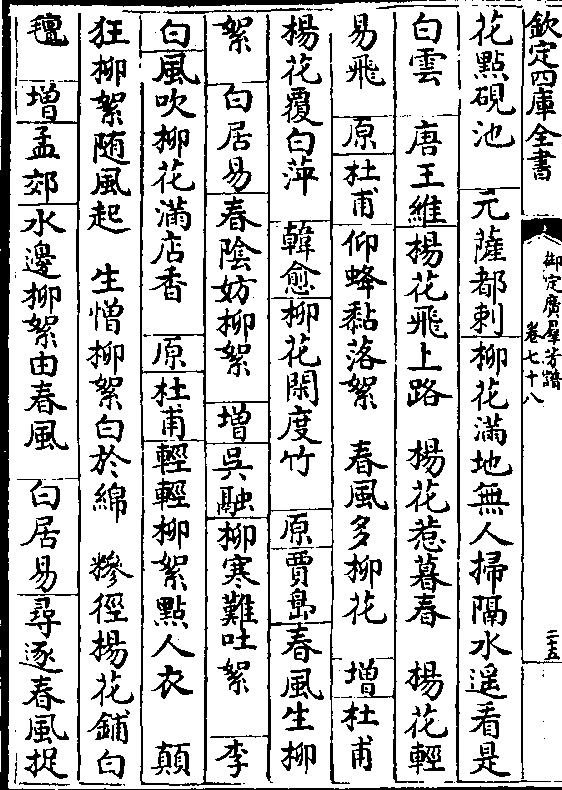 欽定四庫全書
御定廣羣芳譜
卷七十八
二十五
花點硯池　元薩都剌柳花滿地無人掃隔水遥看是
白雲　唐王維楊花飛上路　楊花惹暮春　楊花輕
易飛　原杜甫仰蜂黏落絮　春風多柳花　增杜甫
楊花覆白萍　韓愈柳花閑度竹　原賈島春風生柳
絮　白居易春陰妨柳絮　增吳融柳寒難吐絮　李
白風吹柳花滿店香　原杜甫輕輕柳絮點人衣　顛
狂柳絮随風起　生憎柳絮白於綿　糝徑楊花鋪白
氊　增孟郊水邊柳絮由春風　白居易尋逐春風捉